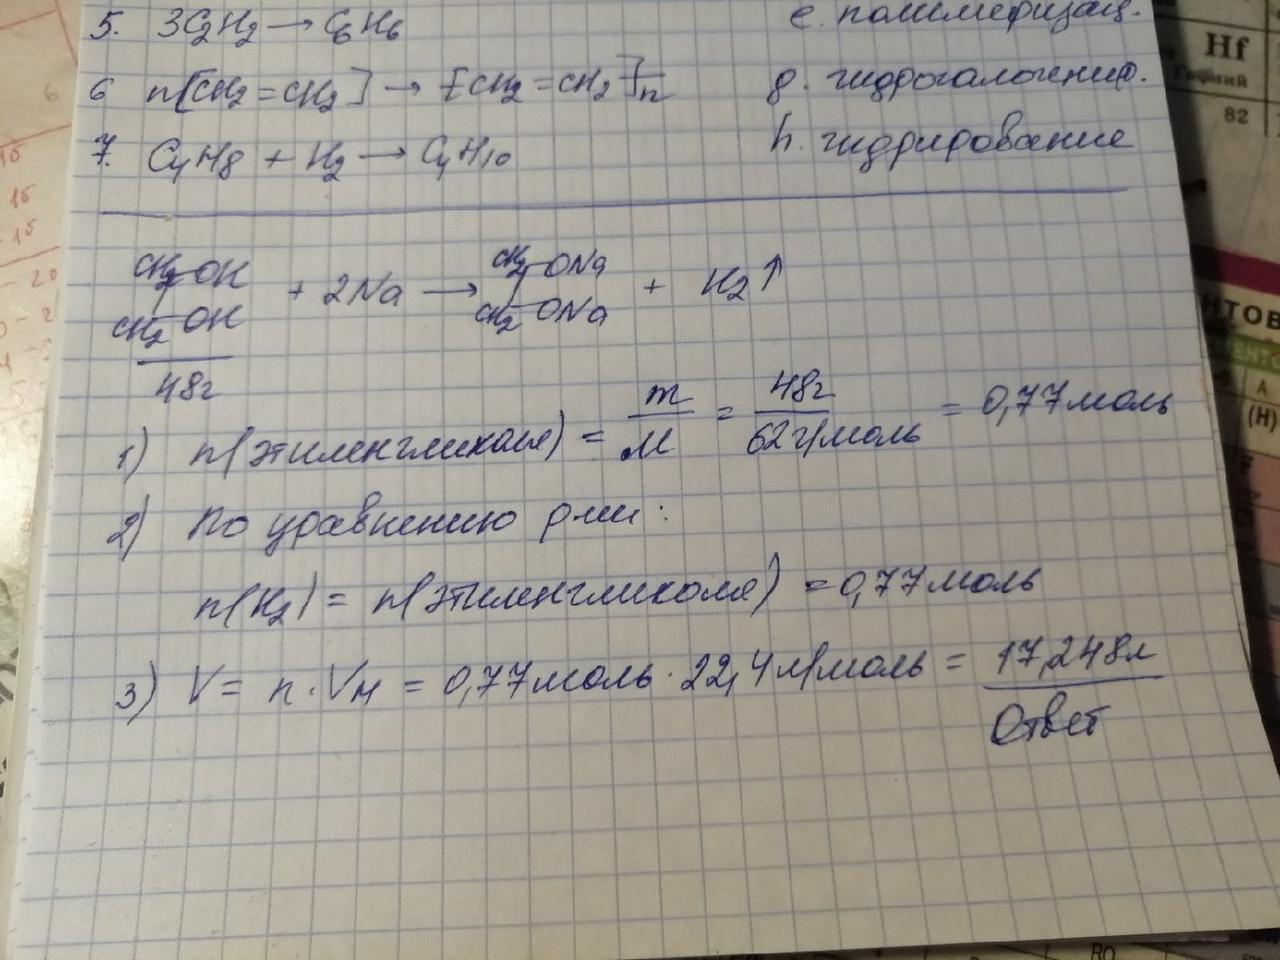 5. 3C2H2 → C6H6 e. полимеризац.
6 n[CH2=CH2] → [CH2=CH2]n g. гидрогалогенир.
7. C4H8 + H2 → C4H10 h. гидрирование
CH2-OH CH2-ONa
+ 2Na → + H2↑
CH2-OH CH2-ONa
48г
1) n(этиленгликоля) = m/M = 48г/62г/моль = 0,77моль
2) По уравнению р-ии:
n(H2) = n(этиленгликоля) = 0,77моль
3) V = n·VM = 0,77моль · 22,4л/моль = 17,248л
Ответ
Hf
Гафний
82
НТОВ
А
(H)
RO